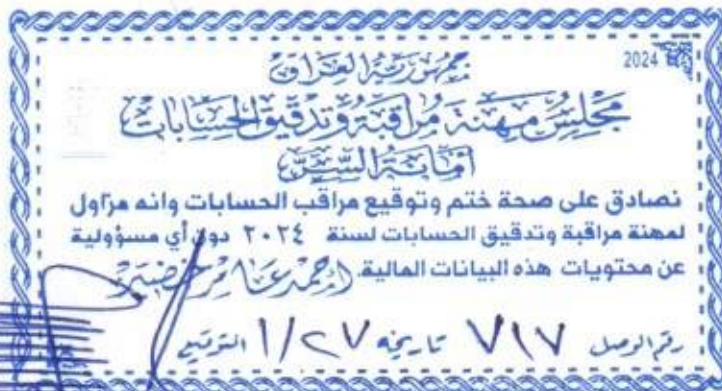 2024
جمهورية العراق
مجلس مهنة مراقبة وتدقيق الحسابات
أمانة السر
نصادق على صحة ختم وتوقيع مراقب الحسابات وانه مزاول
لمهنة مراقبة وتدقيق الحسابات لسنة ٢٠٢٤ دون أي مسؤولية
عن محتويات هذه البيانات المالية. احمد عامر خضير
رقم الوصل ٧١٧ تاريخه ١/٢٧ التوقيع